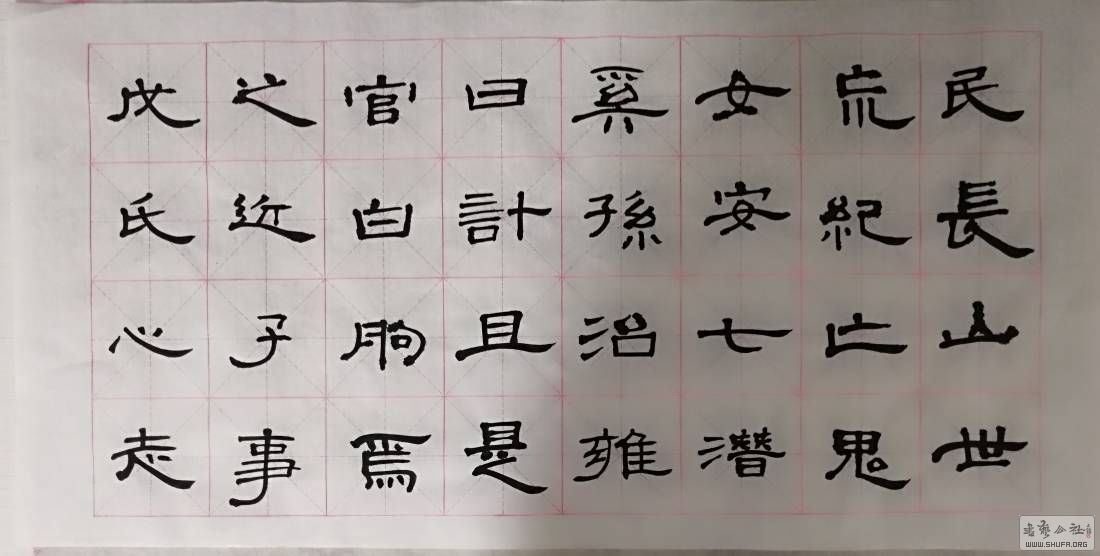 民長山世
巟紀亡鬼
女安七潛
奚孫治雍
曰計且是
官白朐焉
之近子事
戊氏心志
书艺公社
WWW.SHUFA.ORG